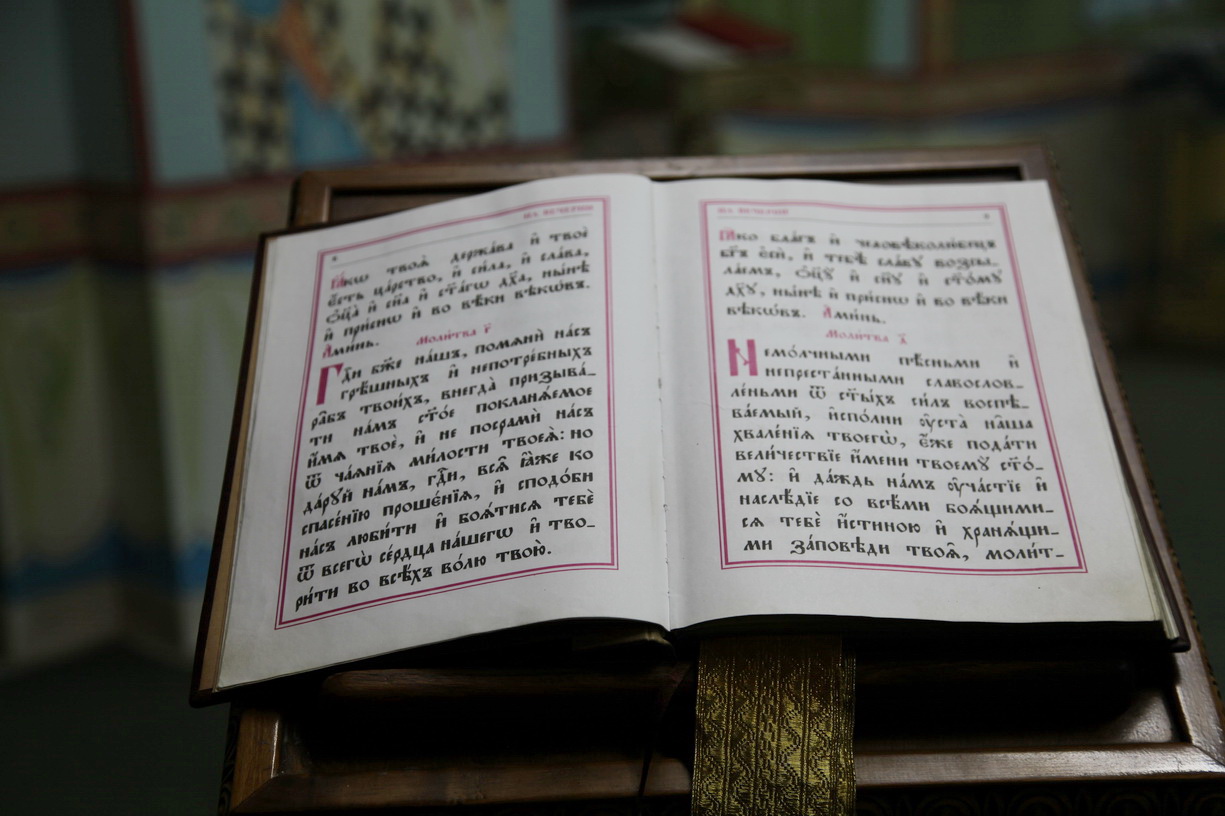 на вечерни
Ꙗ҆́кѡ твоѧ̀ держа́ва и҆ твоѐ
є҆́сть ца́рство, и҆ си́ла, и҆ сла́ва,
ѻ҆ц҃а̀ и҆ сн҃а и҆ ст҃а́гѡ дх҃а, ны́нѣ
и҆ при́снѡ и҆ во вѣ́ки вѣкѡ́въ.
А҆ми́нь.
Моли́тва г҃
Гдⷭ҇и бж҃е на́шъ, помѧнѝ на́съ
грѣ́шныхъ и҆ непотре́бныхъ
ра̑бъ твои́хъ, внегда̀ призыва́-
ти на́мъ ст҃о́е покланѧ́емое
и҆́мѧ твоѐ, и҆ не посрамѝ на́съ
ѿ ча́ѧнїѧ ми́лости твоеѧ̀: но
да́рꙋй на́мъ, гдⷭ҇и, всѧ̑ ꙗ҆̀же ко
спасе́нїю проше́нїѧ, и҆ сподо́би
на́съ люби́ти и҆ боѧ́тисѧ тебѐ
ѿ всегѡ̀ се́рдца на́шегѡ и҆ тво-
ри́ти во всѣ́хъ во́лю твою̀.
на вечерни
Ꙗ҆́кѡ бл҃гъ и҆ человѣколю́бецъ
бг҃ъ є҆сѝ, и҆ тебѣ̀ сла́вꙋ возсы-
ла́емъ, ѻ҆ц҃ꙋ̀ и҆ сн҃ꙋ и҆ ст҃о́мꙋ
дх҃ꙋ, ны́нѣ и҆ при́снѡ и҆ во вѣ́ки
вѣкѡ́въ. А҆ми́нь.
Моли́тва д҃
Немо́лчными пѣ́сньми и҆
непреста́нными славослов-
ле́ньми ѿ ст҃ы́хъ си́лъ воспѣ-
ва́емый, и҆спо́лни ᲂу҆ста̀ на̑ша
хвале́нїѧ твоегѡ̀, є҆́же пода́ти
вели́чествїе и҆́мени твоемꙋ̀ ст҃о́-
мꙋ: и҆ да́ждь на́мъ ᲂу҆ча́стїе и҆
наслѣ́дїе со всѣ́ми боѧ́щими-
сѧ тебѐ и҆́стиною и҆ хранѧ́щи-
ми за́пѡвѣди твоѧ̑, моли́т-